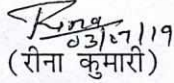 Rina
03/07/19
(रीना कुमारी)